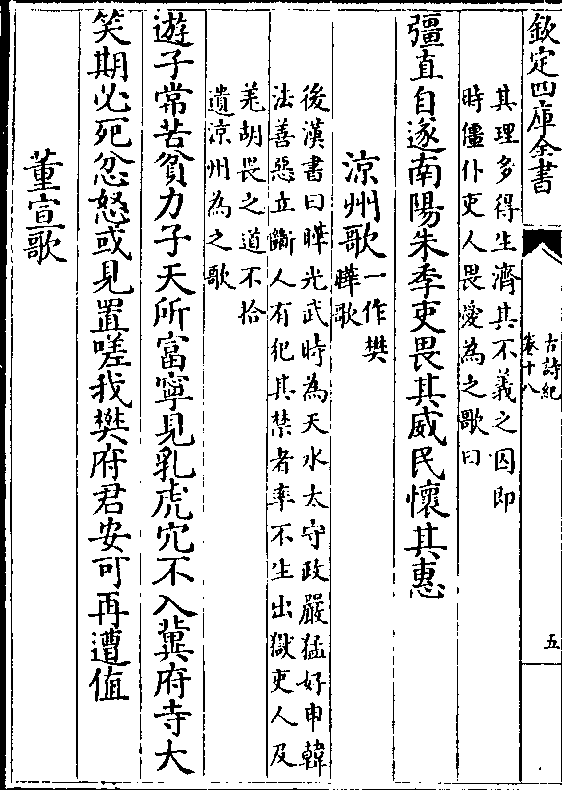 欽定四庫全書
古詩紀
卷十八
五
其理多得生濟其不義之囚即
時僵仆吏人畏愛為之歌曰
彊直自遂南陽朱季吏畏其威民懷其惠
涼州歌一作樊
曄歌
後漢書曰曄光武時為天水太守政嚴猛好申韓
法善惡立斷人有犯其禁者率不生出獄吏人及
羌胡畏之道不拾
遺涼州為之歌
遊子常苦貧力子天所富寧見乳虎穴不入冀府寺大
笑期必死忿怒或見置嗟我樊府君安可再遭值
董宣歌